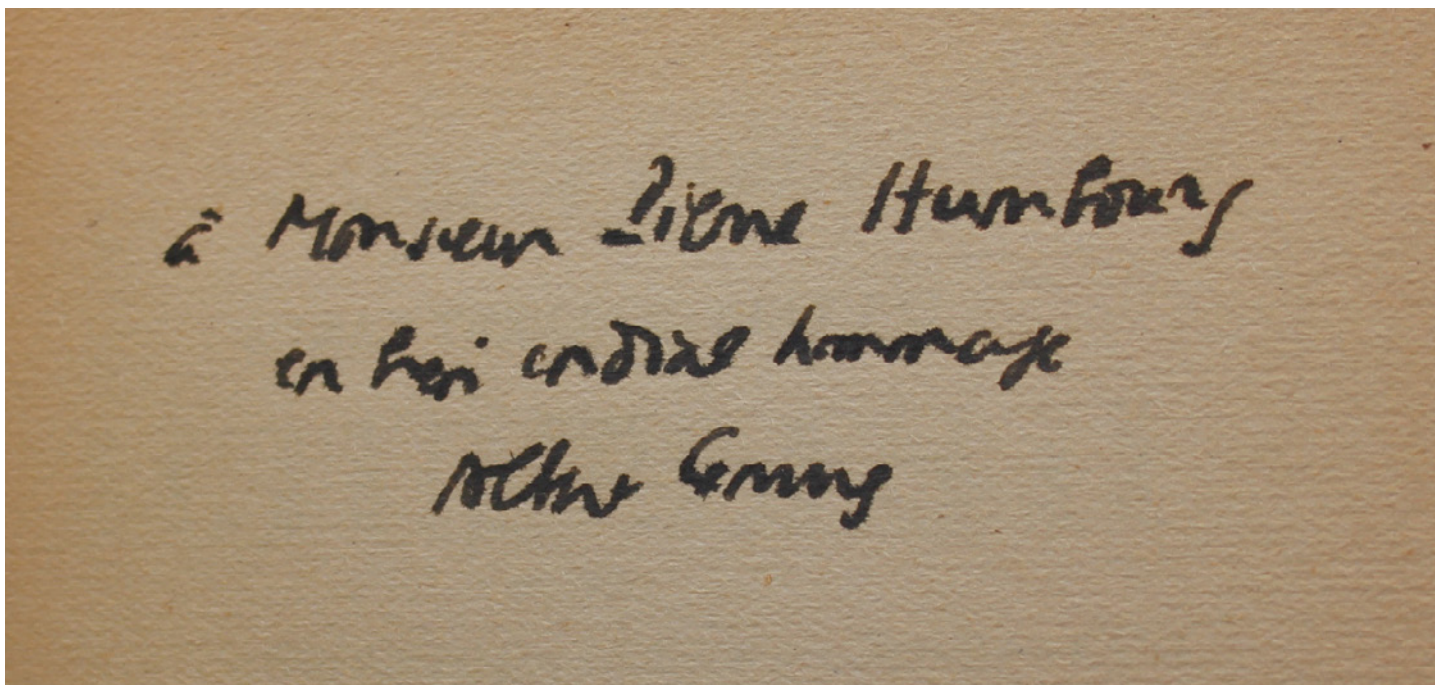 à Monsieur Pierre Humbourg
en bien cordial hommage
Albert Camus